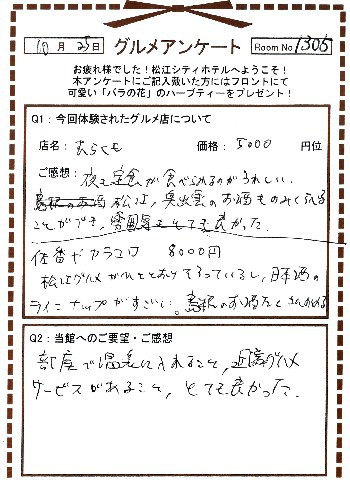 10月25日 グルメアンケート Room No 1306
お疲れ様でした！松江シティホテルへようこそ！
本アンケートにご記入戴いた方にはフロントにて
可愛い「バラの花」のハーブティーをプレゼント！
Q1：今回体験されたグルメ店について
店名：あらくも 価格：5000 円位
ご感想：夜も定食が食べられるのがうれしい。
松江、奥出雲のお酒ものみくらべる
ことができ、雰囲気もとても良かった。
佐香ヤカラコロ 8000円
松江グルメがひととおりそろっているし、日本酒の
ラインナップがすごい。島根のお酒たくさんのめる
Q2：当館へのご要望・ご感想
部屋で温泉に入れること、近隣グルメ
サービスがあること、とても良かった。